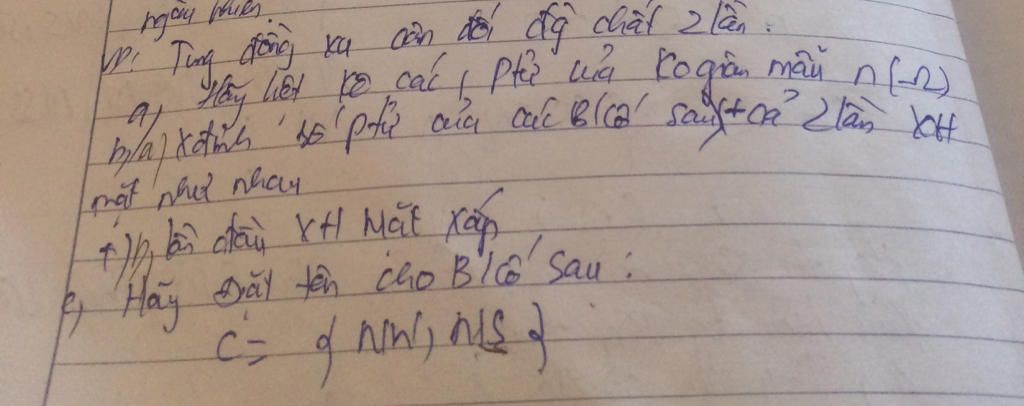 ngẫu nhiên.
VD: Tung đồng xu cân đối đg chất 2 lần.
a, Hãy liệt kê các ptử của ko gian mẫu n(Ω)
b, a) Xđịnh số ptử của các B/cố sau + cả 2 lần XH
mặt như nhau
+) b, lần đầu XH Mặt xấp
c, Hãy đặt tên cho B/cố sau:
C = { NN, NS }